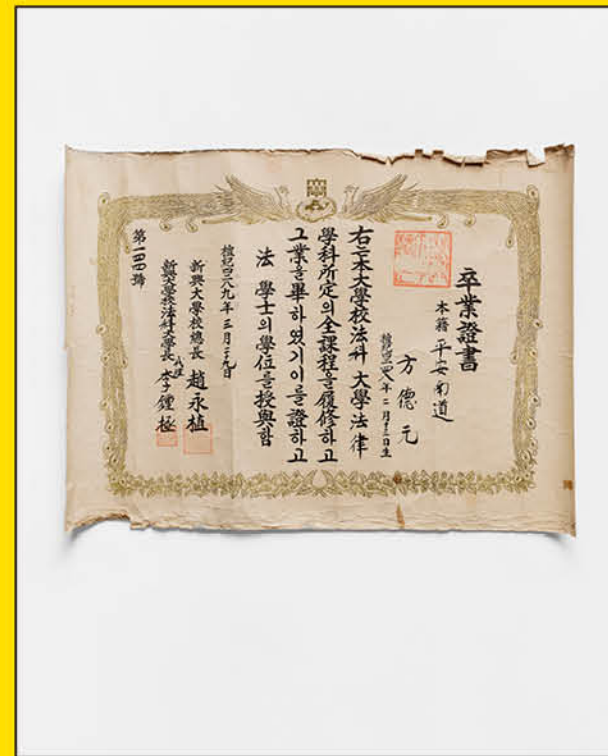 卒業證書
本籍 平安南道
方德元
年二月十三日生
右는本大學校法科 大學法律
學科所定의全課程을履修하고
그業을畢하였기이를證하고
法 學士의學位를授與함
檀紀四二八九年三月二十九日
新興大學校總長 趙永植
新興大學校法科大學長 李鍾極
第一四四號